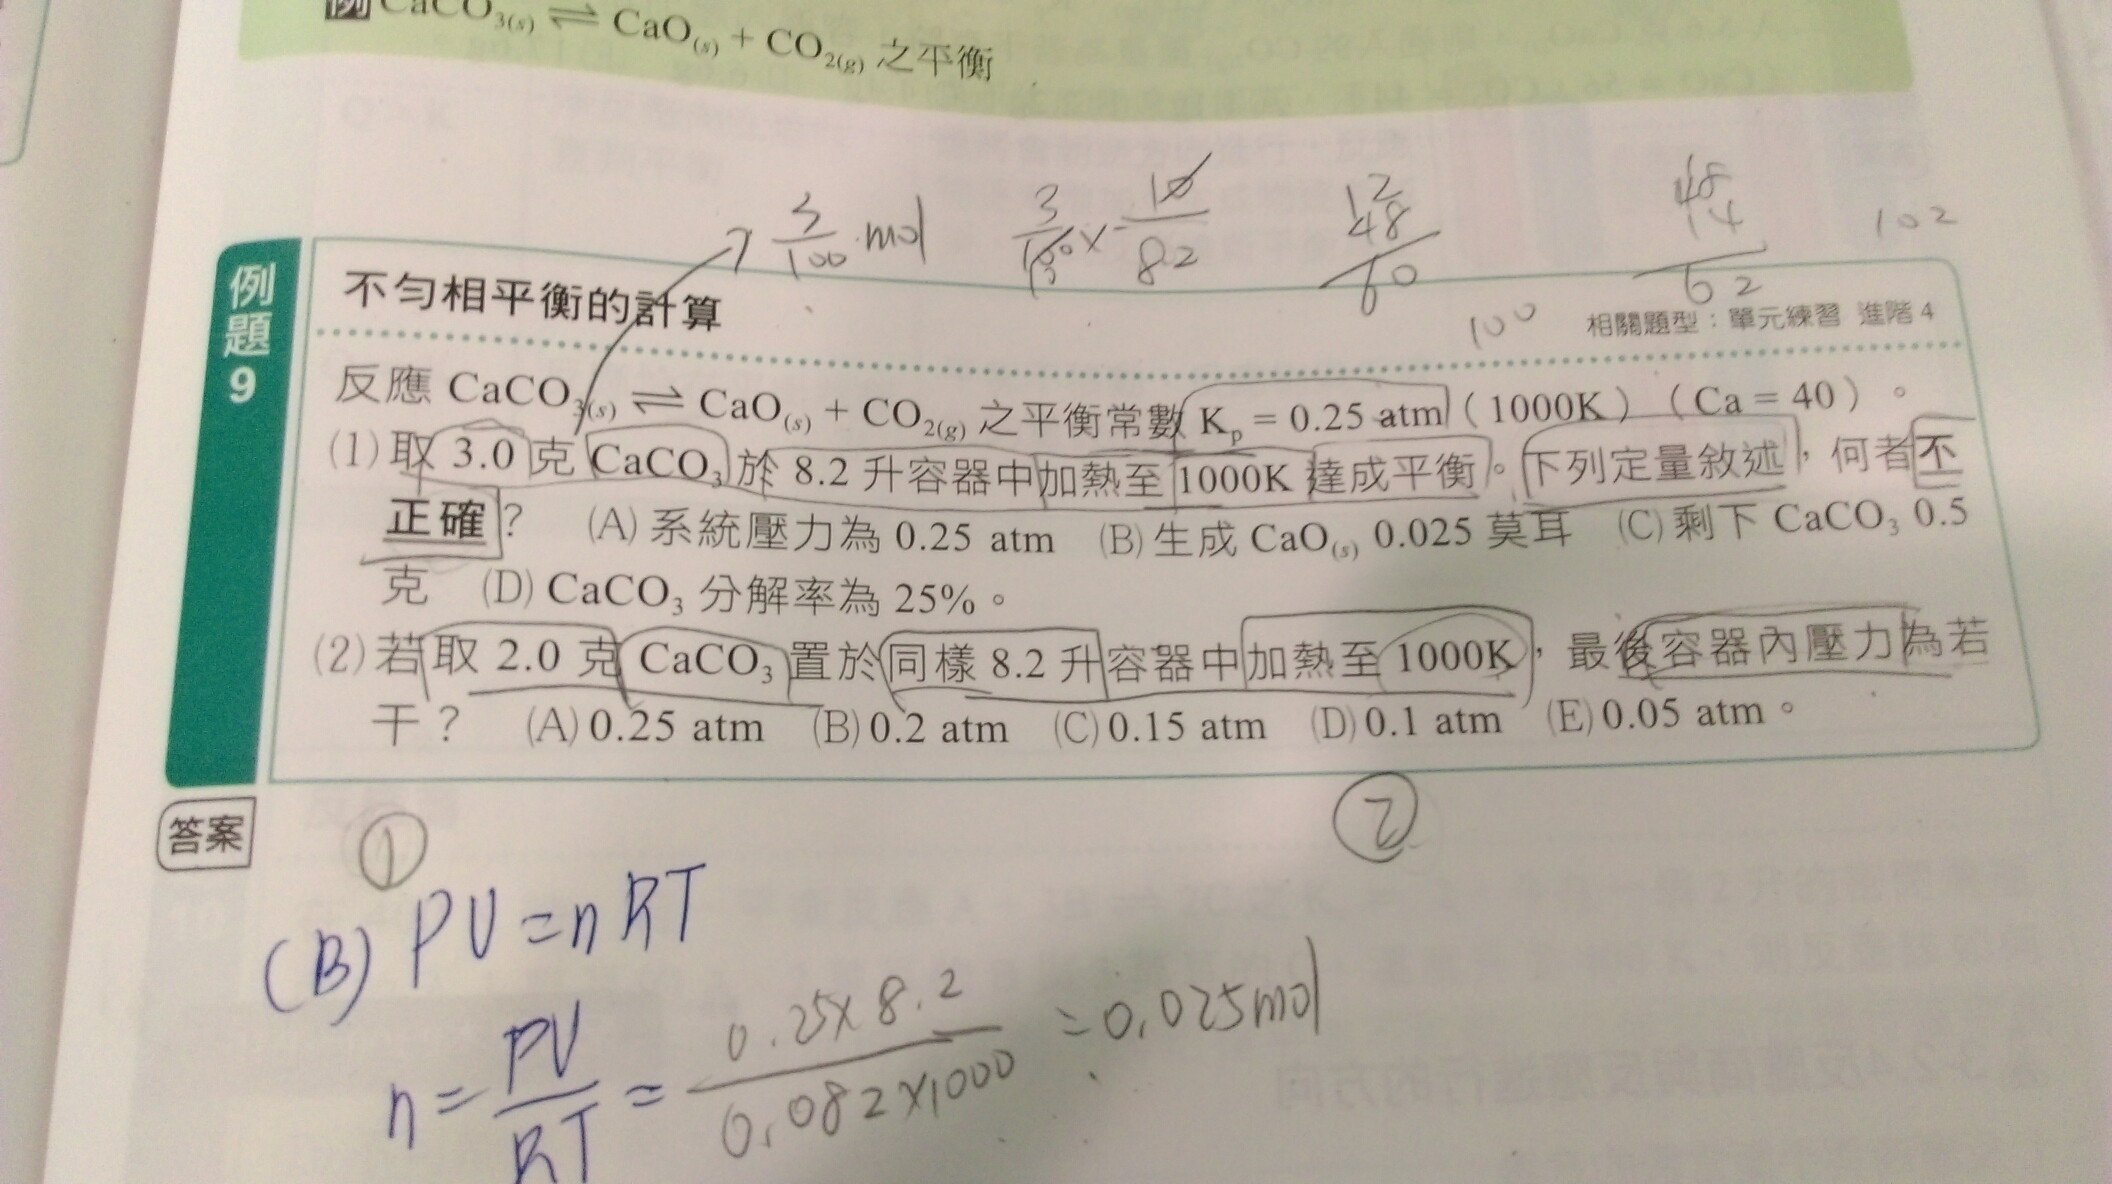 例 CaCO₃₍ₛ₎ ⇌ CaO₍ₛ₎ + CO₂₍g₎ 之平衡
3/100 mol 3/100 × 10/82 12 48/60 48 14/62 102
例題9
不勻相平衡的計算
100 相關題型：單元練習 進階 4
反應 CaCO₃₍ₛ₎ ⇌ CaO₍ₛ₎ + CO₂₍g₎ 之平衡常數 Kp = 0.25 atm（1000K）（Ca = 40）。
(1) 取 3.0 克 CaCO₃ 於 8.2 升容器中加熱至 1000K 達成平衡。下列定量敘述，何者不
正確？ (A) 系統壓力為 0.25 atm (B) 生成 CaO₍ₛ₎ 0.025 莫耳 (C) 剩下 CaCO₃ 0.5
克 (D) CaCO₃ 分解率為 25%。
(2) 若取 2.0 克 CaCO₃ 置於同樣 8.2 升容器中加熱至 1000K，最後容器內壓力為若
干？ (A) 0.25 atm (B) 0.2 atm (C) 0.15 atm (D) 0.1 atm (E) 0.05 atm。
答案 ① ②
(B) PV = nRT
n = PV/RT = 0.25×8.2/0.082×1000 = 0.025mol